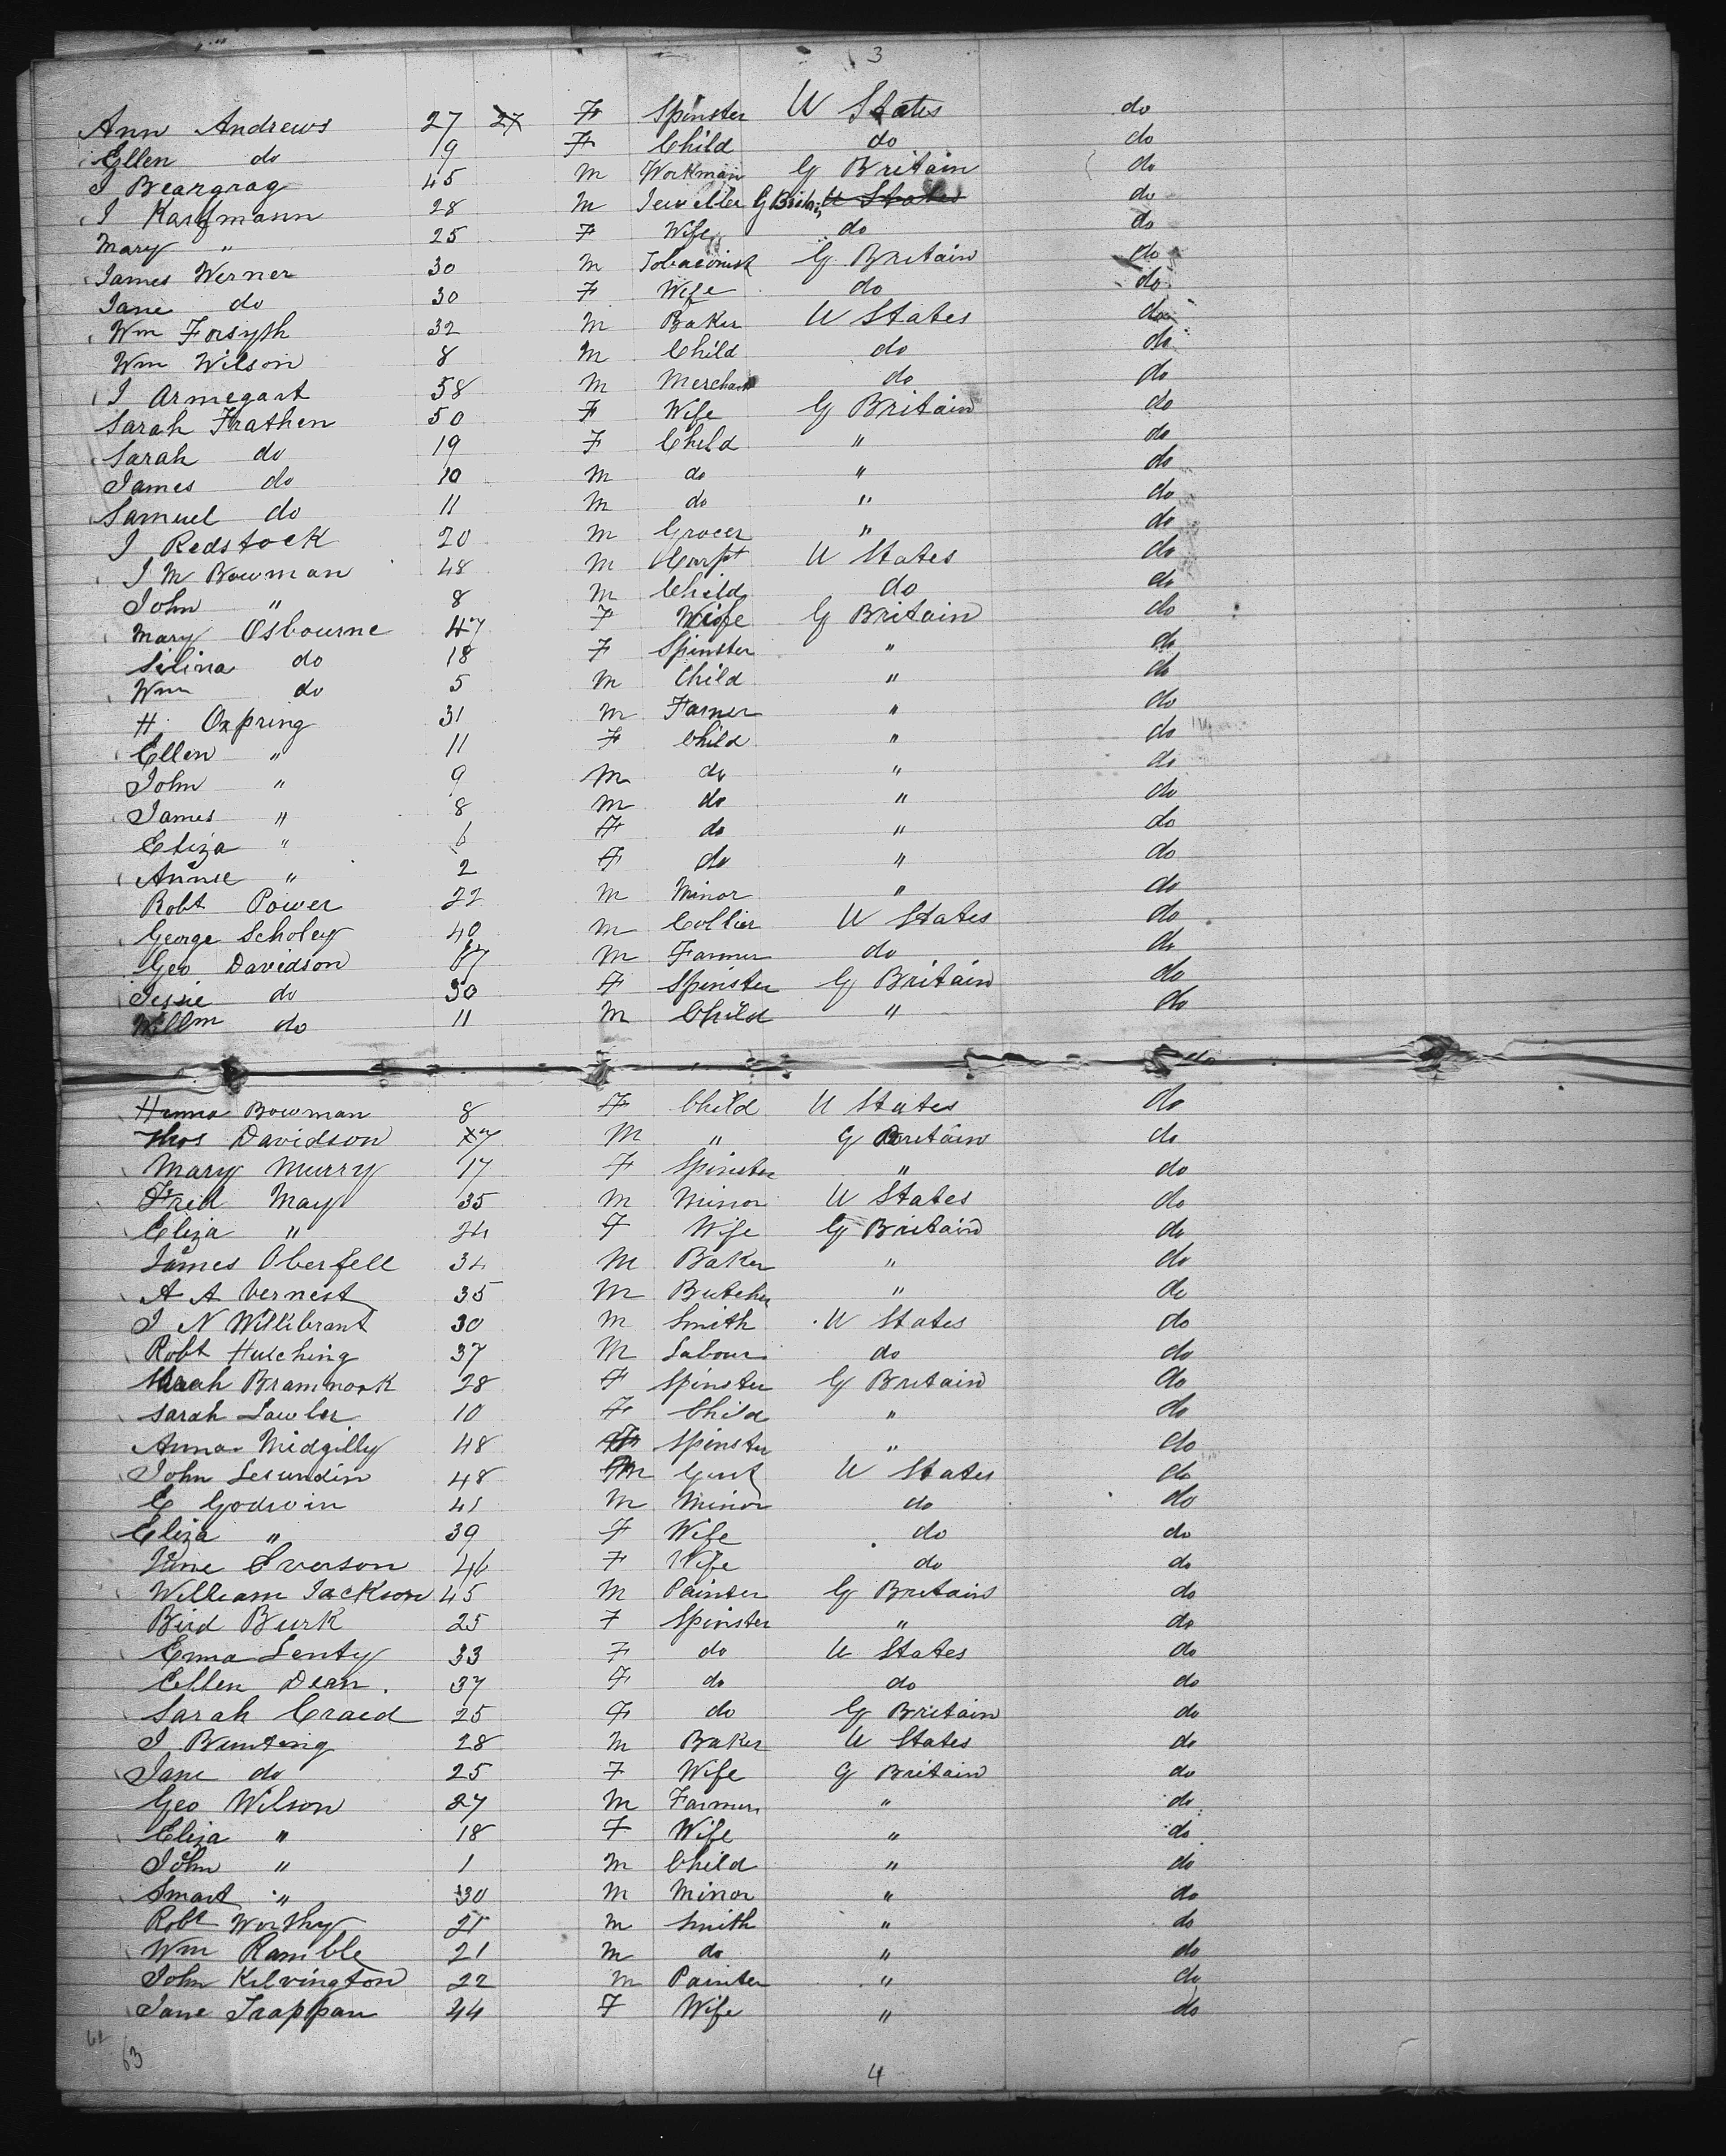 3
Ann Andrews 27 27 F Spinster U States do
Ellen do 19 F Child do do
I Beargrag 45 M Workman G Britain do
I Kaufmann 28 M Jeweller G Britain U States do
Mary " 25 F Wife do do
James Werner 30 M Tobaconist G Britain do
Jane do 30 F Wife do do
Wm Forsyth 32 M Baker U States do
Wm Wilson 8 M Child do do
I Armegart 58 M Merchant do do
Sarah Frathen 50 F Wife G Britain do
Sarah do 19 F Child " do
James do 10 M do " do
Samuel do 11 M do " do
J Redstock 20 M Grocer " do
J M Bowman 48 M Carpt U States do
John " 8 M Child do do
Mary Osbourne 47 F Wife G Britain do
Silina do 18 F Spinster " do
Wm do 5 M Child " do
H Oxpring 31 M Farmer " do
Ellen " 11 F Child " do
John " 9 M do " do
James " 8 M do " do
Eliza " 6 F do " do
Annie " 2 F do " do
Robt Power 22 M Minor " do
George Scholey 40 M Collier U States do
Geo Davidson M Farmer do do
Jessie do 30 F Spinster G Britain do
Willm do 11 M Child " do
do
Hanna Bowman 8 F Child U States do
Thos Davidson M " G Britain do
Mary Murry 17 F Spinster " do
Fred May 35 M Minor U States do
Eliza " 24 F Wife G Britain do
James Oberfell 34 M Baker " do
A A Vernest 35 M Butcher " do
J N Willibrant 30 M Smith U States do
Robt Hutching 37 M Labour do do
Sarah Brammook 28 F Spinster G Britain do
Sarah Lawler 10 F Child " do
Anna Midgilly 48 F Spinster " do
John Lesundin 48 M Gent U States do
E Godwin 41 M Minor do do
Eliza " 39 F Wife do do
Jane Everson 46 F Wife do do
William Jackson 45 M Painter G Britain do
Bird Burk 25 F Spinster " do
Emma Lenty 33 F do U States do
Ellen Dean 37 F do do do
Sarah Craed 25 F do G Britain do
J Bunting 28 M Baker U States do
Jane do 25 F Wife G Britain do
Geo Wilson 27 M Farmer " do
Eliza " 18 F Wife " do
John " 1 M Child " do
Smart " 30 M Minor " do
Robt Worthy 21 M Smith " do
Wm Ramble 21 M do " do
John Kilvington 22 M Painter " do
Jane Trappan 44 F Wife " do
62
63
4